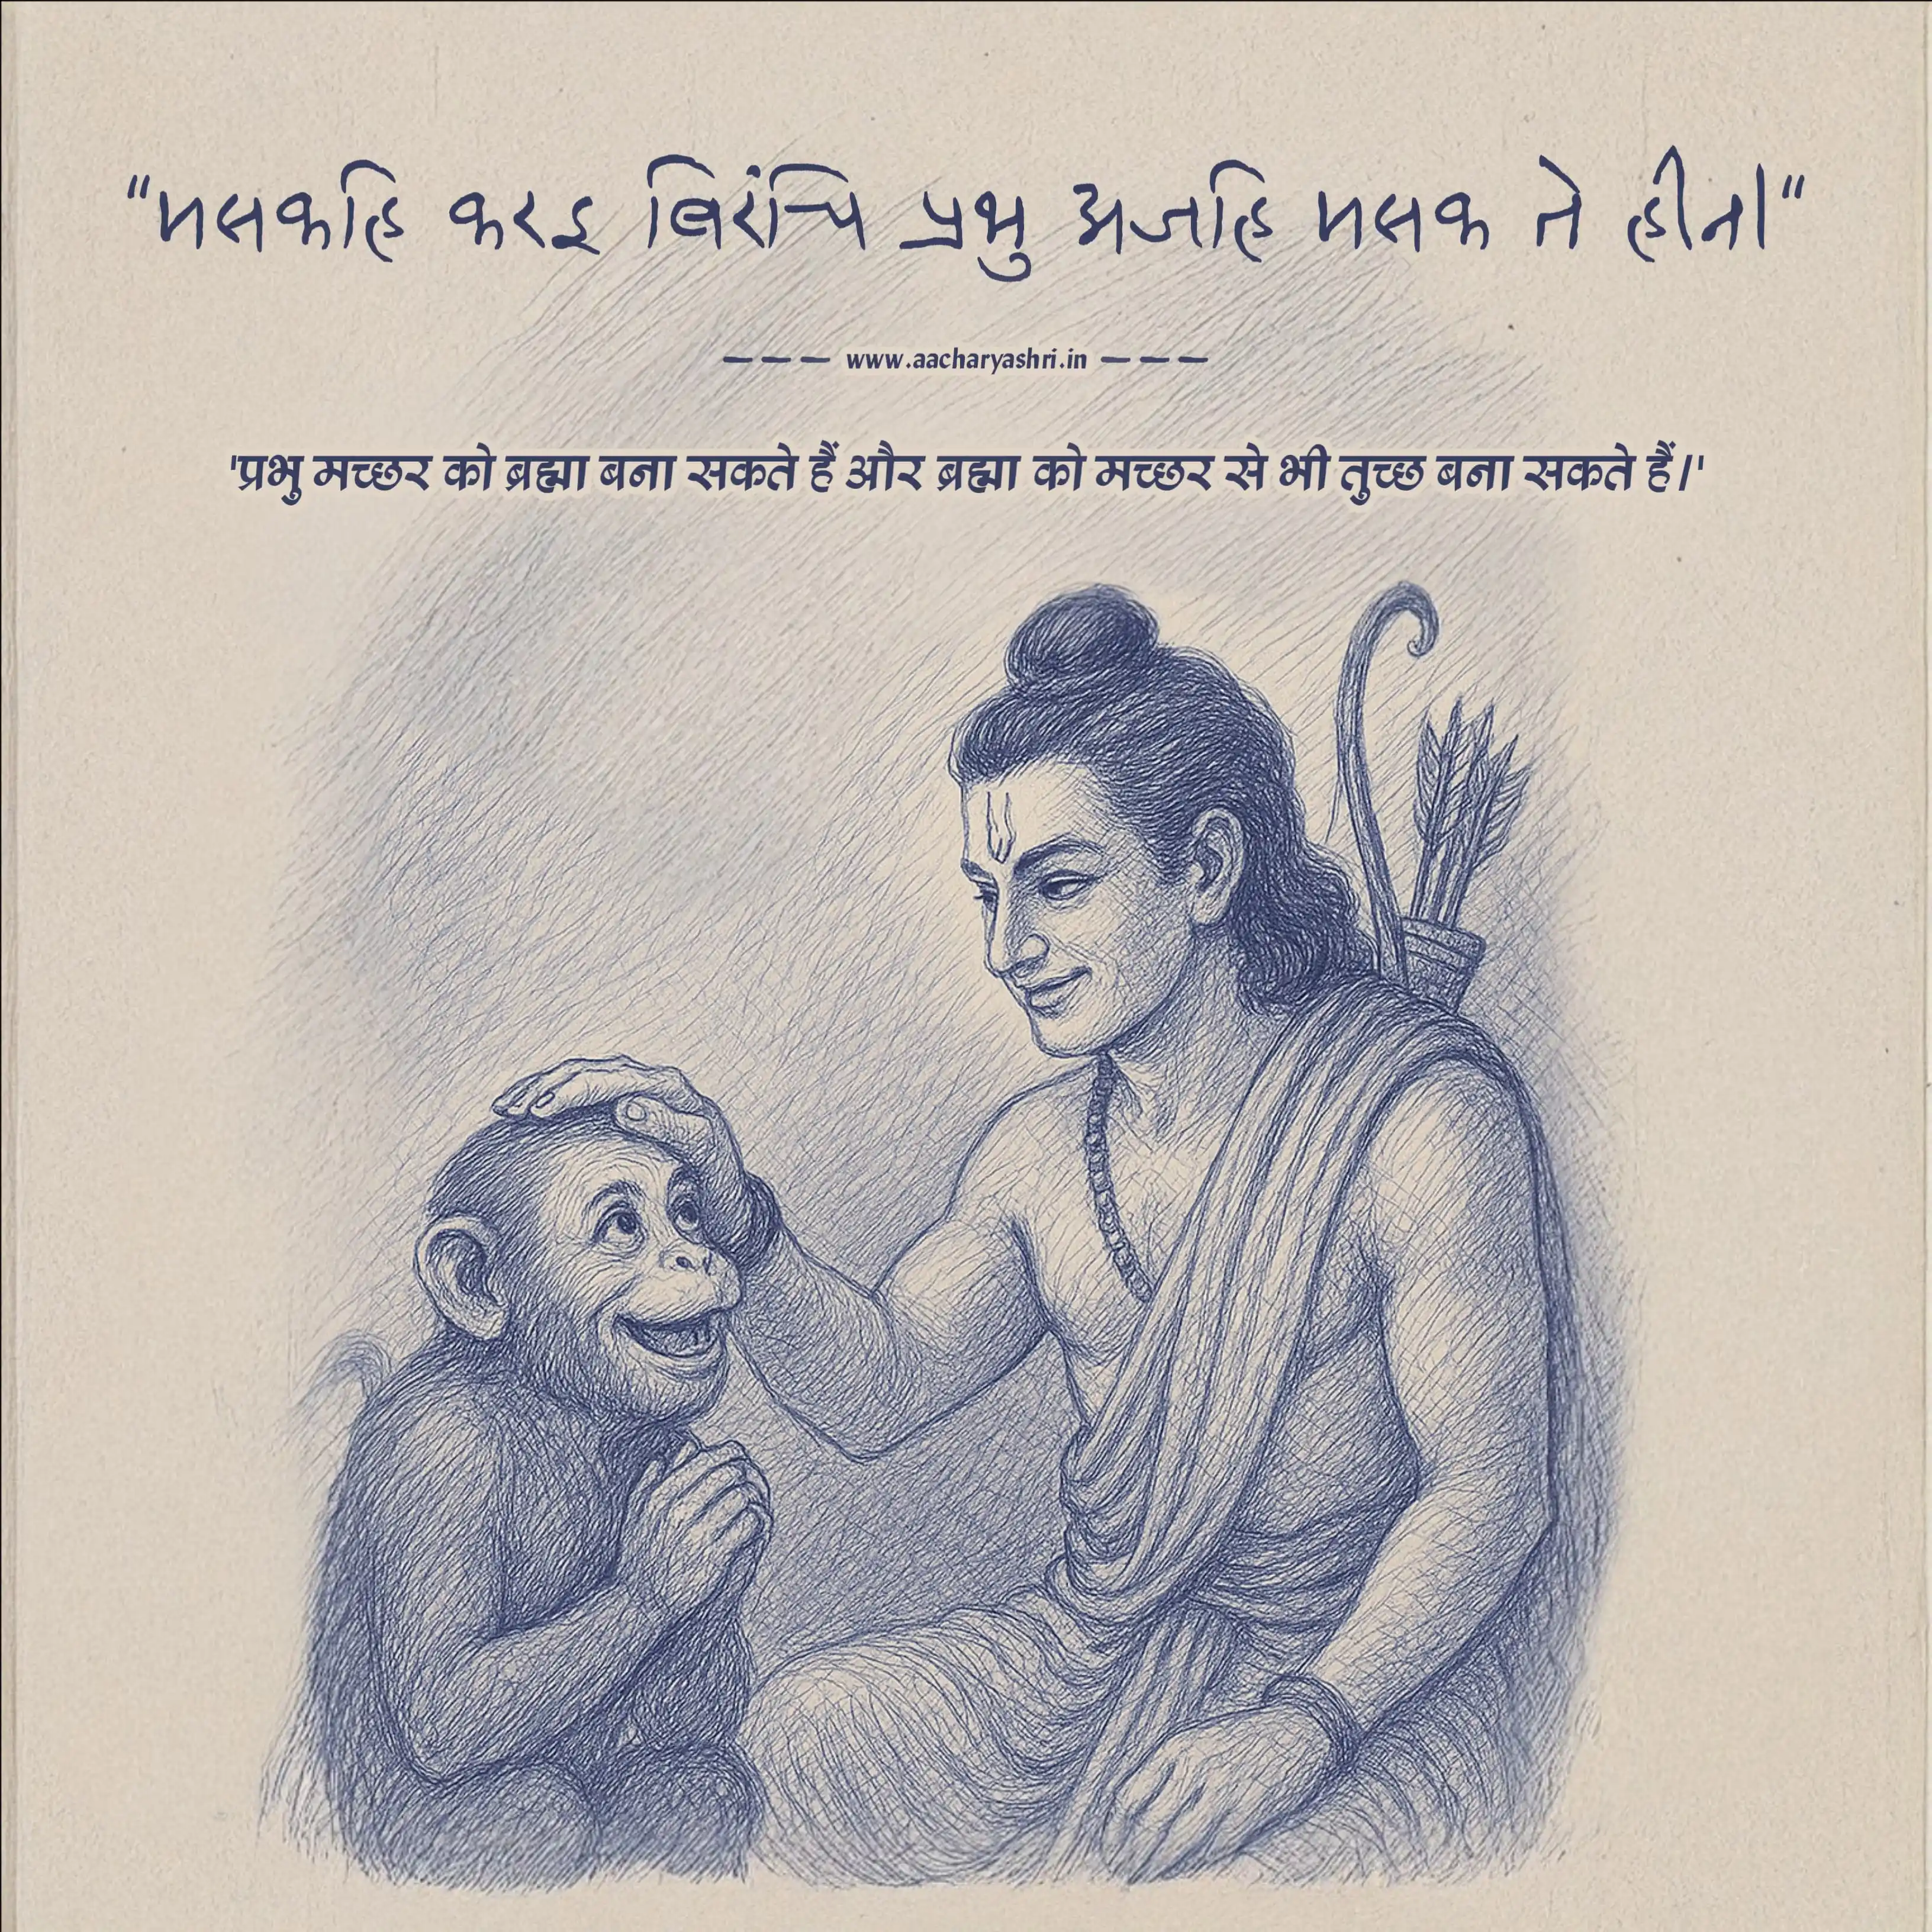 "मसकहि करइ बिरंचि प्रभु अजहि मसक ते हीन।"
--- www.aacharyashri.in ---
'प्रभु मच्छर को ब्रह्मा बना सकते हैं और ब्रह्मा को मच्छर से भी तुच्छ बना सकते हैं।'